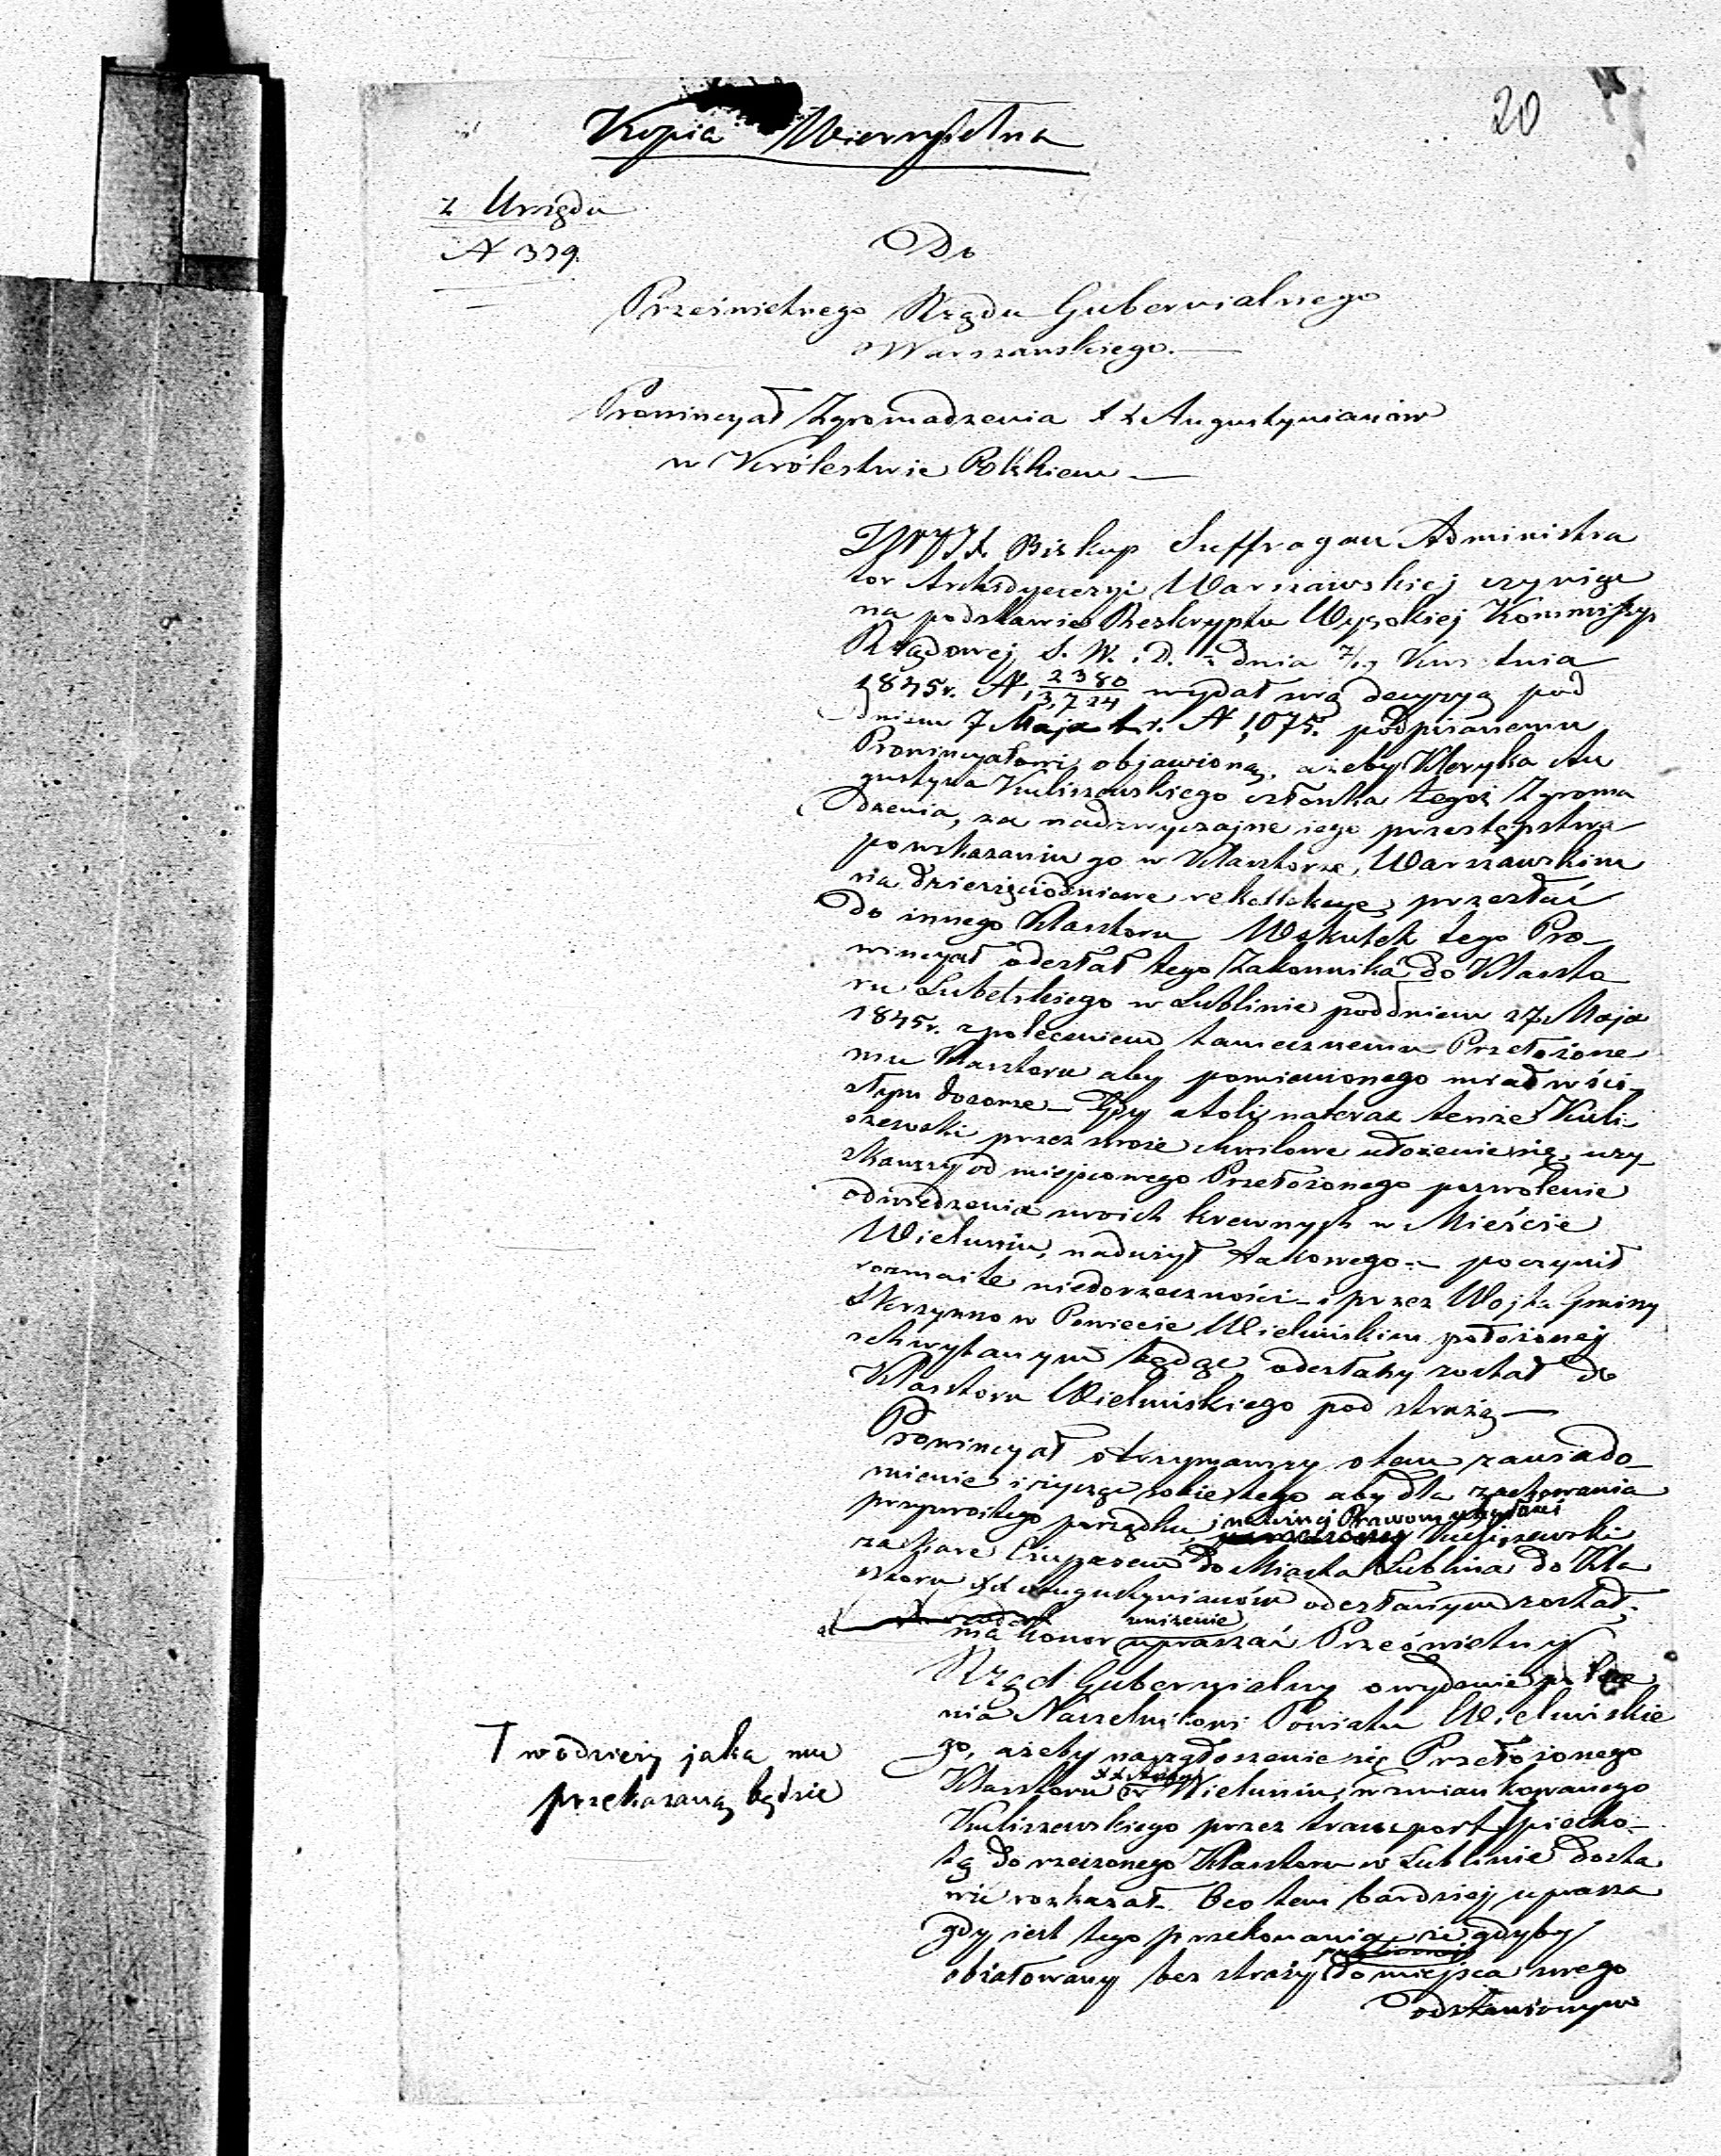 20
Kopia Wierzytelna
z Urzędu
N 339.
Do
Prześwietnego Rządu Gubernialnego
Warszawskiego.
Prowincyał Zgromadzenia XX Augustyanów
w Królestwie Polskiem
Biskup Suffragan Administra
tor Archidyecezyi Warszawskiej czyniąc
na podstawie Reskryptu Wysokiej Kommissyi
Rządowej S. W. i D. z dnia 7/19 Kwietnia
1845r. N 2380/13,724 wydał swą decyzyą pod
dniem 7 Maja t. r. N 1075. podpisanemu
Prowincyałowi objawioną, ażeby Kleryka Au
gustyna Kuliszewskiego członka tegoż Zgroma
dzenia, za nadzwyczajne iego przestępstwa
po wskazaniu go w Klasztorze Warszawskim
na dziesięciodniowe rekollekcye, przesłać
do innego Klasztoru Wskutek tego Pro-
wincyał odesłał tego Zakonnika do Klaszto
ru Lubelskiego w Lublinie pod dniem 27 Maja
1845r. z poleceniem tamecznemu Przełożone
mu Klasztoru aby pomienionego miał w ści-
słym dozorze - Gdy atoli nateraz tenże Kuli-
szewski przez swoje chwilowe ułożenie się, uzy-
skawszy od miejscowego Przełożonego pozwolenie
odwiedzenia swoich krewnych w Mieście
Wieluniu, nadużył takowego - poczynił
rozmaite niedorzeczności - i przez Wójta Gminy
Skrzynno w Powiecie Wieluńskim położonej
schwytanym będąc odesłany został do
Klasztoru Wieluńskiego pod strażą -
Prowincyał otrzymawszy o tem zawiado-
mienie i życząc sobie tego aby dla zachowania
przyzwoitego porządku, Kuliszewski
za karę do Miasta Lublina do Kla
sztoru XX Augustyanów odesłanym został,
uniżenie
ma honor upraszać Prześwietny
Rząd Gubernialny o wydanie polece
nia Naczelnikowi Powiatu Wieluńskie
go, ażeby na zgłoszenie się Przełożonego
Klasztoru XX Aug. w Wieluniu, wzmiankowanego
Kuliszewskiego przez transport T piecho-
tą do rzeczonego Klasztoru w Lublinie dosta
wić rozkazał. O co tem bardziej uprasza
gdy jest tego przekonania, że gdyby
obżałowany bez straży do miejsca swego
odstawionym
T w odzieży jaka mu
przekazaną będzie